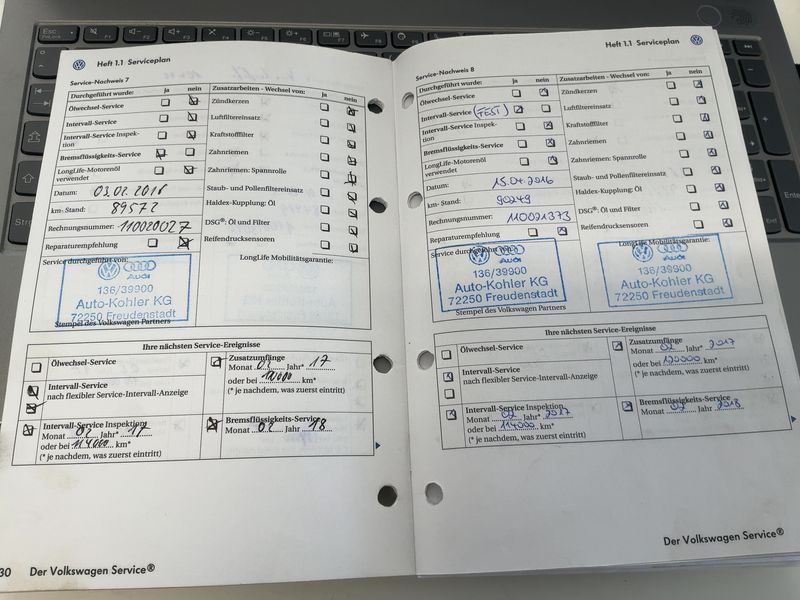 Heft 1.1 Serviceplan
Service-Nachweis 7
Durchgeführt wurde: ja nein Zusatzarbeiten - Wechsel von: ja nein
Ölwechsel-Service Zündkerzen
Intervall-Service Luftfiltereinsatz
Intervall-Service Inspek-
tion Kraftstofffilter
Bremsflüssigkeits-Service Zahnriemen
LongLife-Motorenöl
verwendet Zahnriemen: Spannrolle
Datum: Staub- und Pollenfiltereinsatz
km-Stand: 89572 Haldex-Kupplung: Öl
Rechnungsnummer: 110020027 DSG®: Öl und Filter
Reparaturempfehlung Reifendrucksensoren
Service durchgeführt von: LongLife Mobilitätsgarantie:
Audi
136/39900
Auto-Kohler KG
72250 Freudenstadt
Stempel des Volkswagen Partners
Ihre nächsten Service-Ereignisse
Ölwechsel-Service
Intervall-Service
nach flexibler Service-Intervall-Anzeige
Intervall-Service Inspektion
Monat 02 Jahr* 17
oder bei 114000 km*
(* je nachdem, was zuerst eintritt)
Zusatzumfänge
Monat 02 Jahr* 17
oder bei km*
(* je nachdem, was zuerst eintritt)
Bremsflüssigkeits-Service
Monat 02 Jahr 18
30 Der Volkswagen Service®
Heft 1.1 Serviceplan
Service-Nachweis 8
Durchgeführt wurde: ja nein Zusatzarbeiten - Wechsel von: ja nein
Ölwechsel-Service Zündkerzen
Intervall-Service (TEST) Luftfiltereinsatz
Intervall-Service Inspek-
tion Kraftstofffilter
Bremsflüssigkeits-Service Zahnriemen
LongLife-Motorenöl
verwendet Zahnriemen: Spannrolle
Datum: 15.04.2016 Staub- und Pollenfiltereinsatz
km-Stand: 90249 Haldex-Kupplung: Öl
Rechnungsnummer: 110021373 DSG®: Öl und Filter
Reparaturempfehlung Reifendrucksensoren
Service durchgeführt von: LongLife Mobilitätsgarantie:
Audi Audi
136/39900 136/39900
Auto-Kohler KG Auto-Kohler KG
72250 Freudenstadt 72250 Freudenstadt
Stempel des Volkswagen Partners
Ihre nächsten Service-Ereignisse
Ölwechsel-Service
Intervall-Service
nach flexibler Service-Intervall-Anzeige
Intervall-Service Inspektion
Monat 02 Jahr* 2017
oder bei 114000 km*
(* je nachdem, was zuerst eintritt)
Zusatzumfänge
Monat 02 Jahr* 2017
oder bei 120000 km*
(* je nachdem, was zuerst eintritt)
Bremsflüssigkeits-Service
Monat 02 Jahr 2018
Der Volkswagen Service®